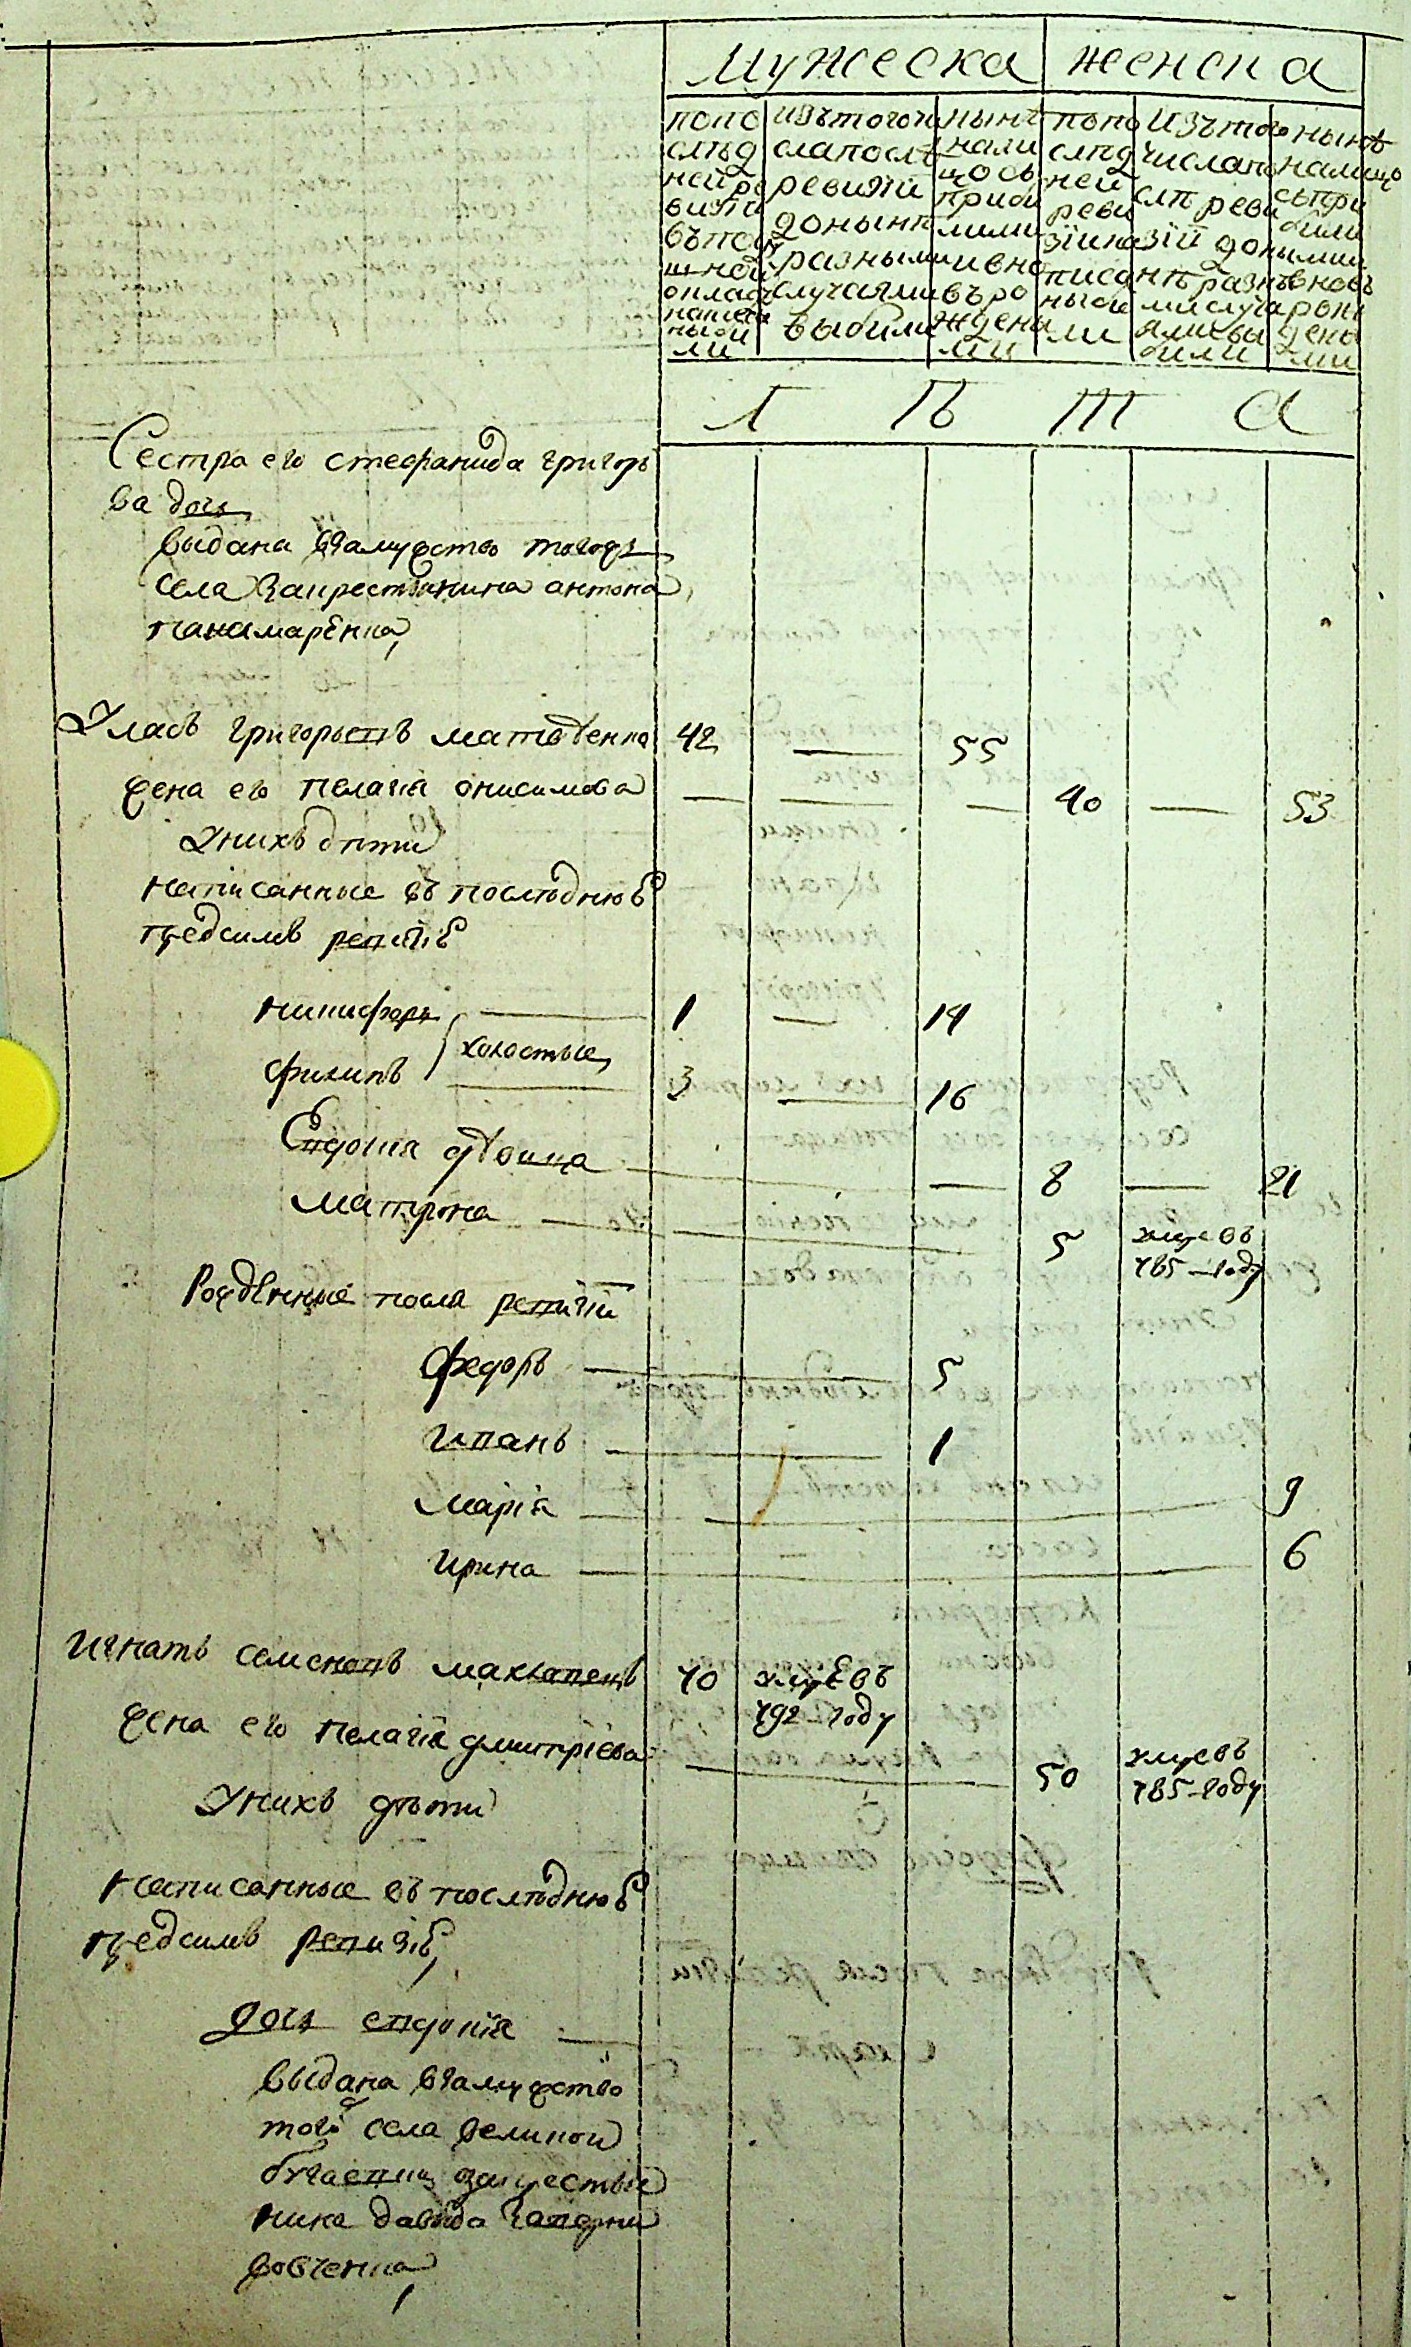 мужеска женска
попо слѣд ней ре визiи въпод ушной окладъ написа ны бы ли
изътогоч слапослѣ ревизiи донынѣ разными случаями выбыли
нынѣ нали цось прибы лими ивно въро жденны ми
попо слѣд ней реви зiина писа ны бы ли
изътого числапо слѣ реви зiй доны нѣ разны ми случа ями вы были
нынѣ налицо сыпри были ими ивновь рож дены ми
л ѣ т а
Сестра его стефанида григорь
ва дочь
выдана взамужство тогожъ
села закрестянина антона
панамаренка,
Уласъ григорьевъ матвѣенко 42 — 55
жена его пелагiя онисимова — — — 40 — 53
Унихъ дѣти
написанные въ последнюю
предсимъ ревизiю
никифоръ 1 — 14
холостые
филипъ 3 — 16
Евдокiя дѣвица — 8 — 21
матрона — 5 умре въ
785 году
Рожденные посля ревизiи
федоръ — 5
иванъ — 1
марiя — 9
ирина — 6
игнатъ семеновъ маклавецъ 70 умре въ
792 году
жена его пелагiя дмитрiева — 50 умре въ
785 году
Унихъ дѣти
написанные въ последнюю
предсимъ ревизiю,
дочь евдокiя —
выдана взамужство
того села великой
бугаевки закрестья
нина давида